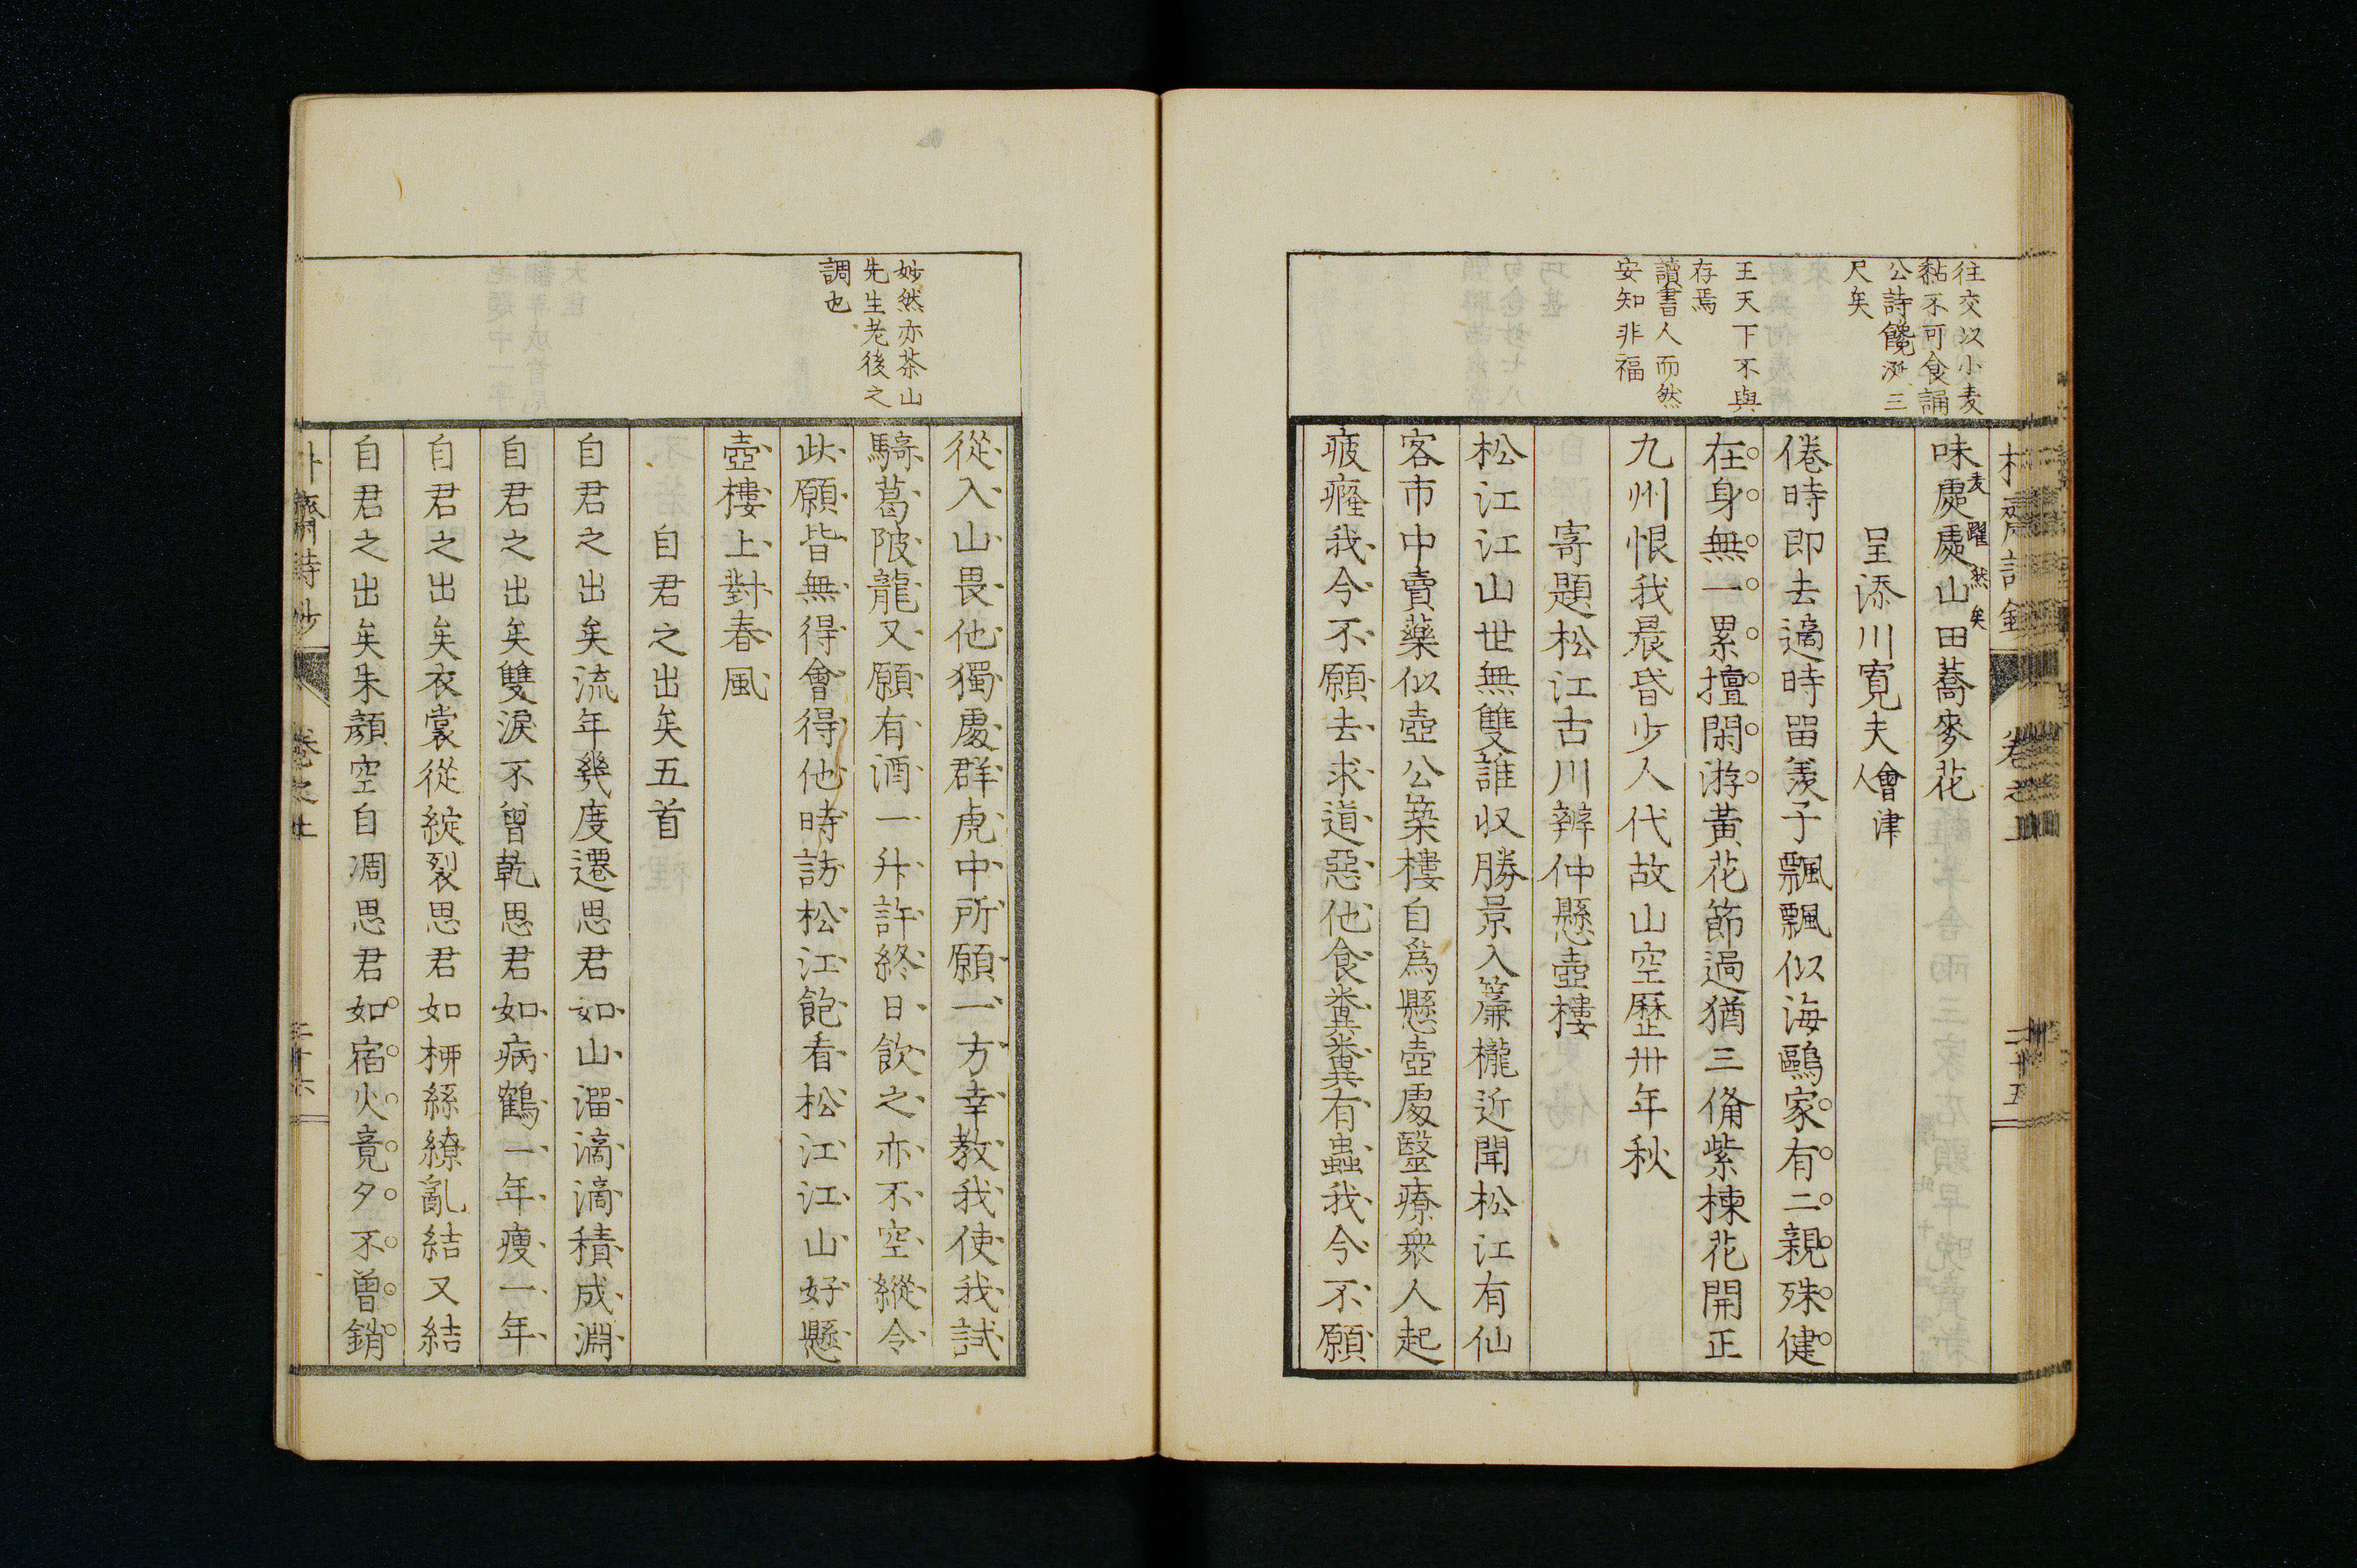 往交以小麦
黏不可食誦
公詩饞涎三
尺矣
王天下不與
存焉
讀書人而然
安知非福
卷之上
二十五
味處處山田蕎麥花
麦躍然矣
呈添川寬夫會津人
倦時即去適時留羨子飄飄似海鷗家有二親殊健
在身無一累擅閑游黃花節過猶三脩紫楝花開正
九州恨我晨昏少人代故山空歷卅年秋
寄題松江古川辨仲懸壺樓
松江江山世無雙誰収勝景入簾櫳近聞松江有仙
客市中賣藥似壺公築樓自爲懸壺處醫療衆人起
疲癃我今不願去求道惡他食糞糞有蟲我今不願
妙然亦茶山
先生老後之
調也
從入山畏他獨處群虎中所願一方幸教我使我試
騎葛陂龍又願有酒一升許終日飲之亦不空縱令
此願皆無得會得他時訪松江飽看松江江山好懸
壺樓上對春風
自君之出矣五首
自君之出矣流年幾度遷思君如山溜滴滴積成淵
自君之出矣雙涙不曾乾思君如病鶴一年瘦一年
自君之出矣衣裳從綻裂思君如枡絲繚亂結又結
自君之出矣朱顏空自凋思君如宿火竟夕不曾銷
齋詩鈔
卷之上
二十六